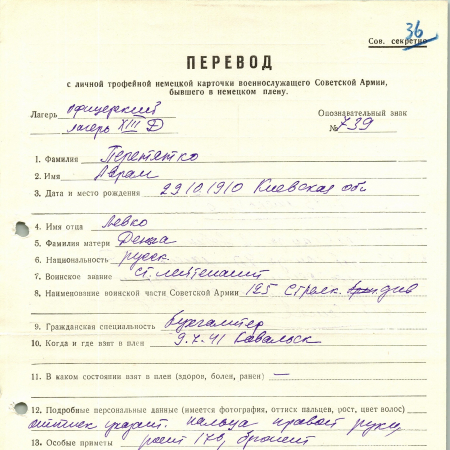 36
Сов. секретно
ПЕРЕВОД
с личной трофейной немецкой карточки военнослужащего Советской Армии,
бывшего в немецком плену.
Лагерь офицерский Опознавательный знак
лагерь XIII D № 739
1. Фамилия Перетятко
2. Имя Аврам
3. Дата и место рождения 29.10.1910 Киевская обл
4. Имя отца Левко
5. Фамилия матери
6. Национальность русск.
7. Воинское звание ст. лейтенант
8. Наименование воинской части Советской Армии 195 Стрелк. див
9. Гражданская специальность бухгалтер
10. Когда и где взят в плен 9.7.41
11. В каком состоянии взят в плен (здоров, болен, ранен) —
12. Подробные персональные данные (имеется фотография, оттиск пальцев, рост, цвет волос)
оттиск указат. пальца правой руки,
13. Особые приметы рост 176, брюнет